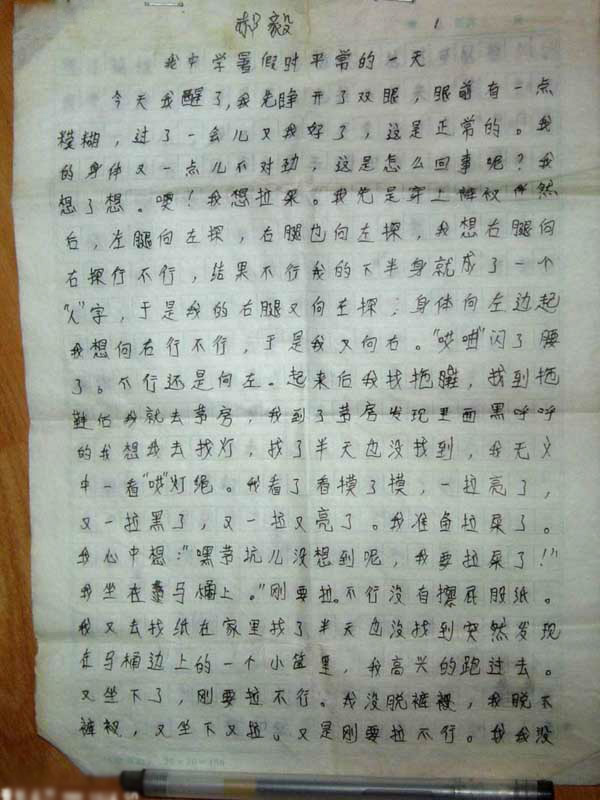 郝毅
1
我中学暑假时平常的一天
今天我醒了,我先睁开了双眼,眼前有一点
模糊,过了一会儿又我好了,这是正常的。我
的身体又一点儿不对劲,这是怎么回事呢?我
想了想。噢!我想拉屎。我先是穿上裤衩 然
后,左腿向左探,右腿也向左探,我想右腿向
右探行不行,结果不行我的下半身就成了一个
“人”字,于是我的右腿又向左探;身体向左边起
我想向右行不行,于是我又向右。“哎呦”闪了腰
了。不行还是向左。起来后我找拖鞋,找到拖
鞋后我就去茅房,我到了茅房发现里面黑呼呼
的我想我去找灯,找了半天也没找到,我无义
中一看“哎”灯绳。我看了看摸了摸,一拉亮了,
又一拉黑了,又一拉又亮了。我准备拉屎了。
我心中想:“嘿茅坑儿没想到呢,我要拉屎了!”
我坐在马桶上。”刚要拉。不行没有擦屁股纸。
我又去找纸在家里找了半天也没找到突然发现
在马桶边上的一个小筐里,我高兴的跑过去。
又坐下了,刚要拉不行。我没脱裤衩,我脱下
裤衩,又坐下又拉。又是刚要拉不行。我我没